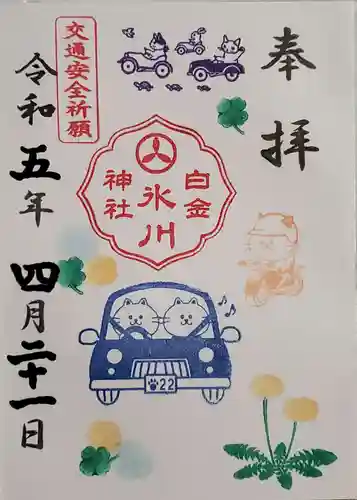 奉拝
交通安全祈願
白金
氷川
神社
令和五年四月二十一日
22